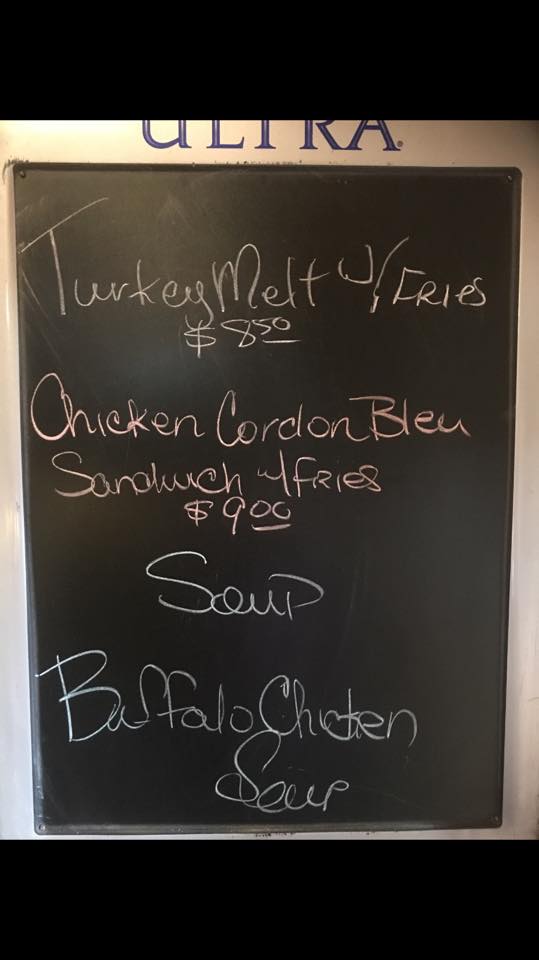 ULTRA®
Turkey Melt w/ FRIES
$8.50
Chicken Cordon Bleu
Sandwich w/ FRIES
$9.00
Soup
Buffalo Chicken
Soup